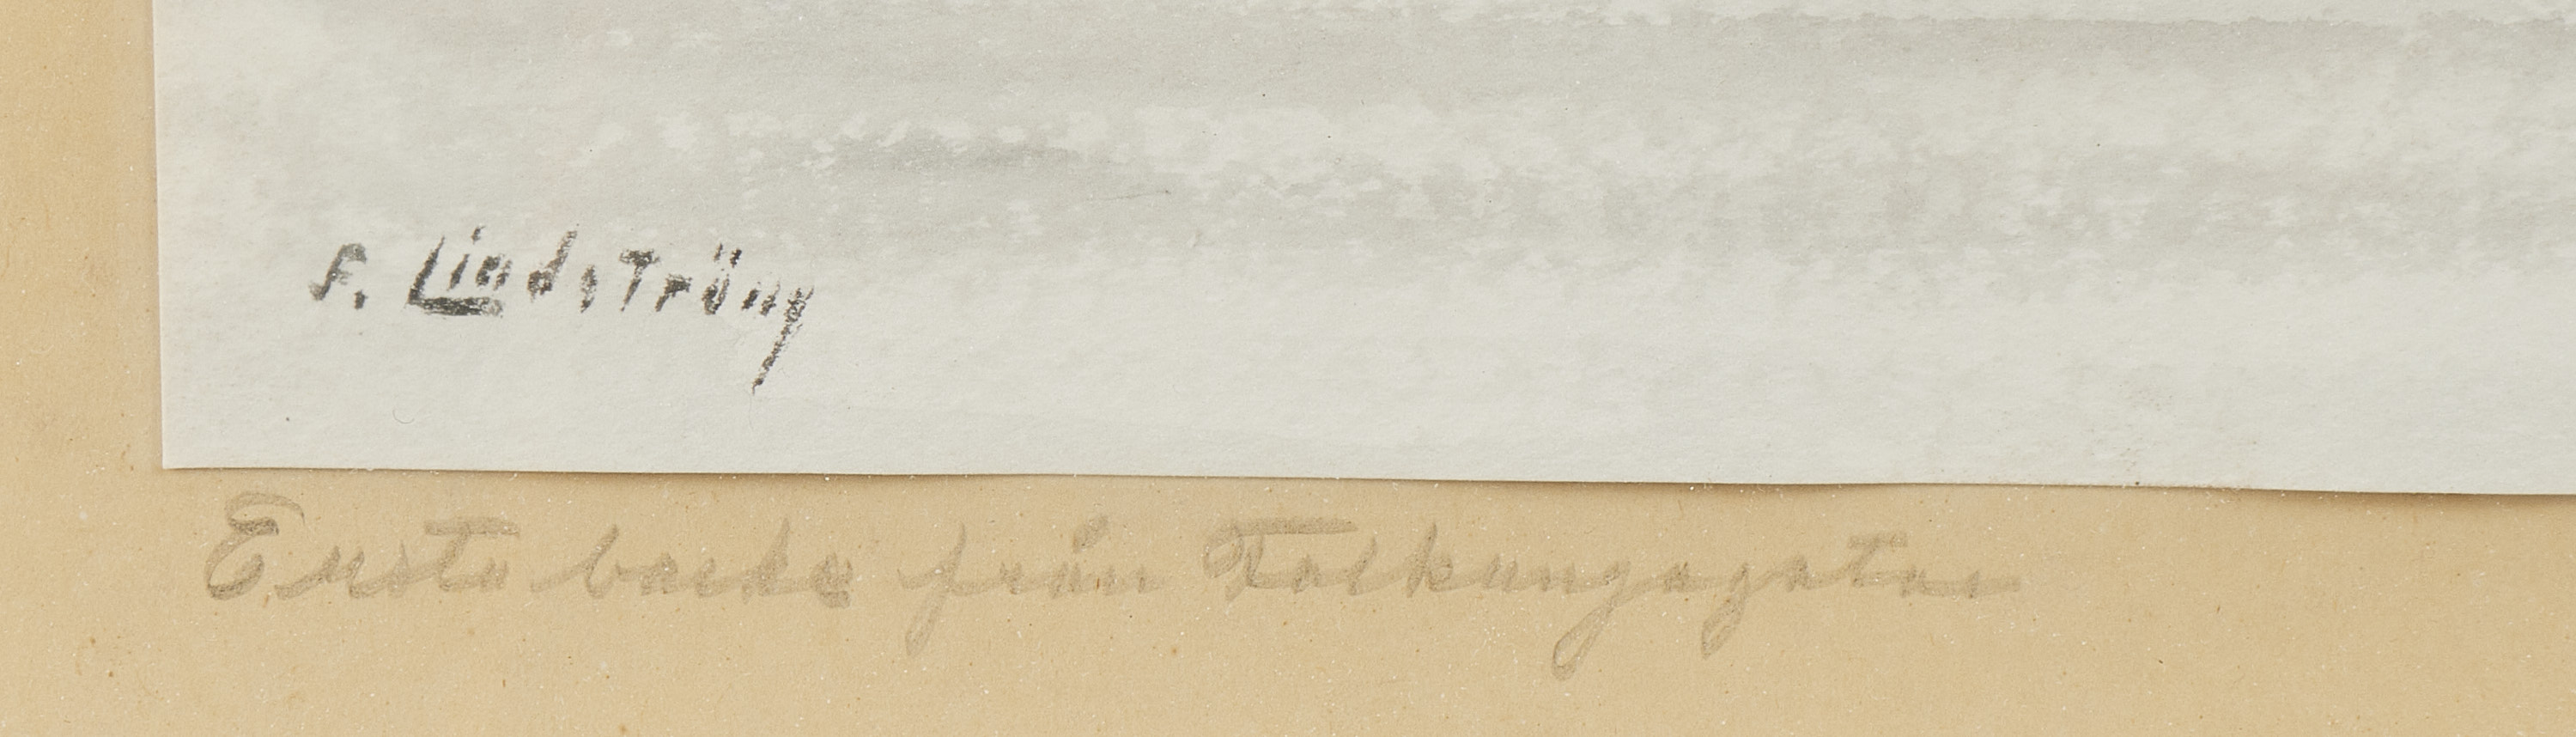 F. Lindström
Ersta backe från Folkungagatan